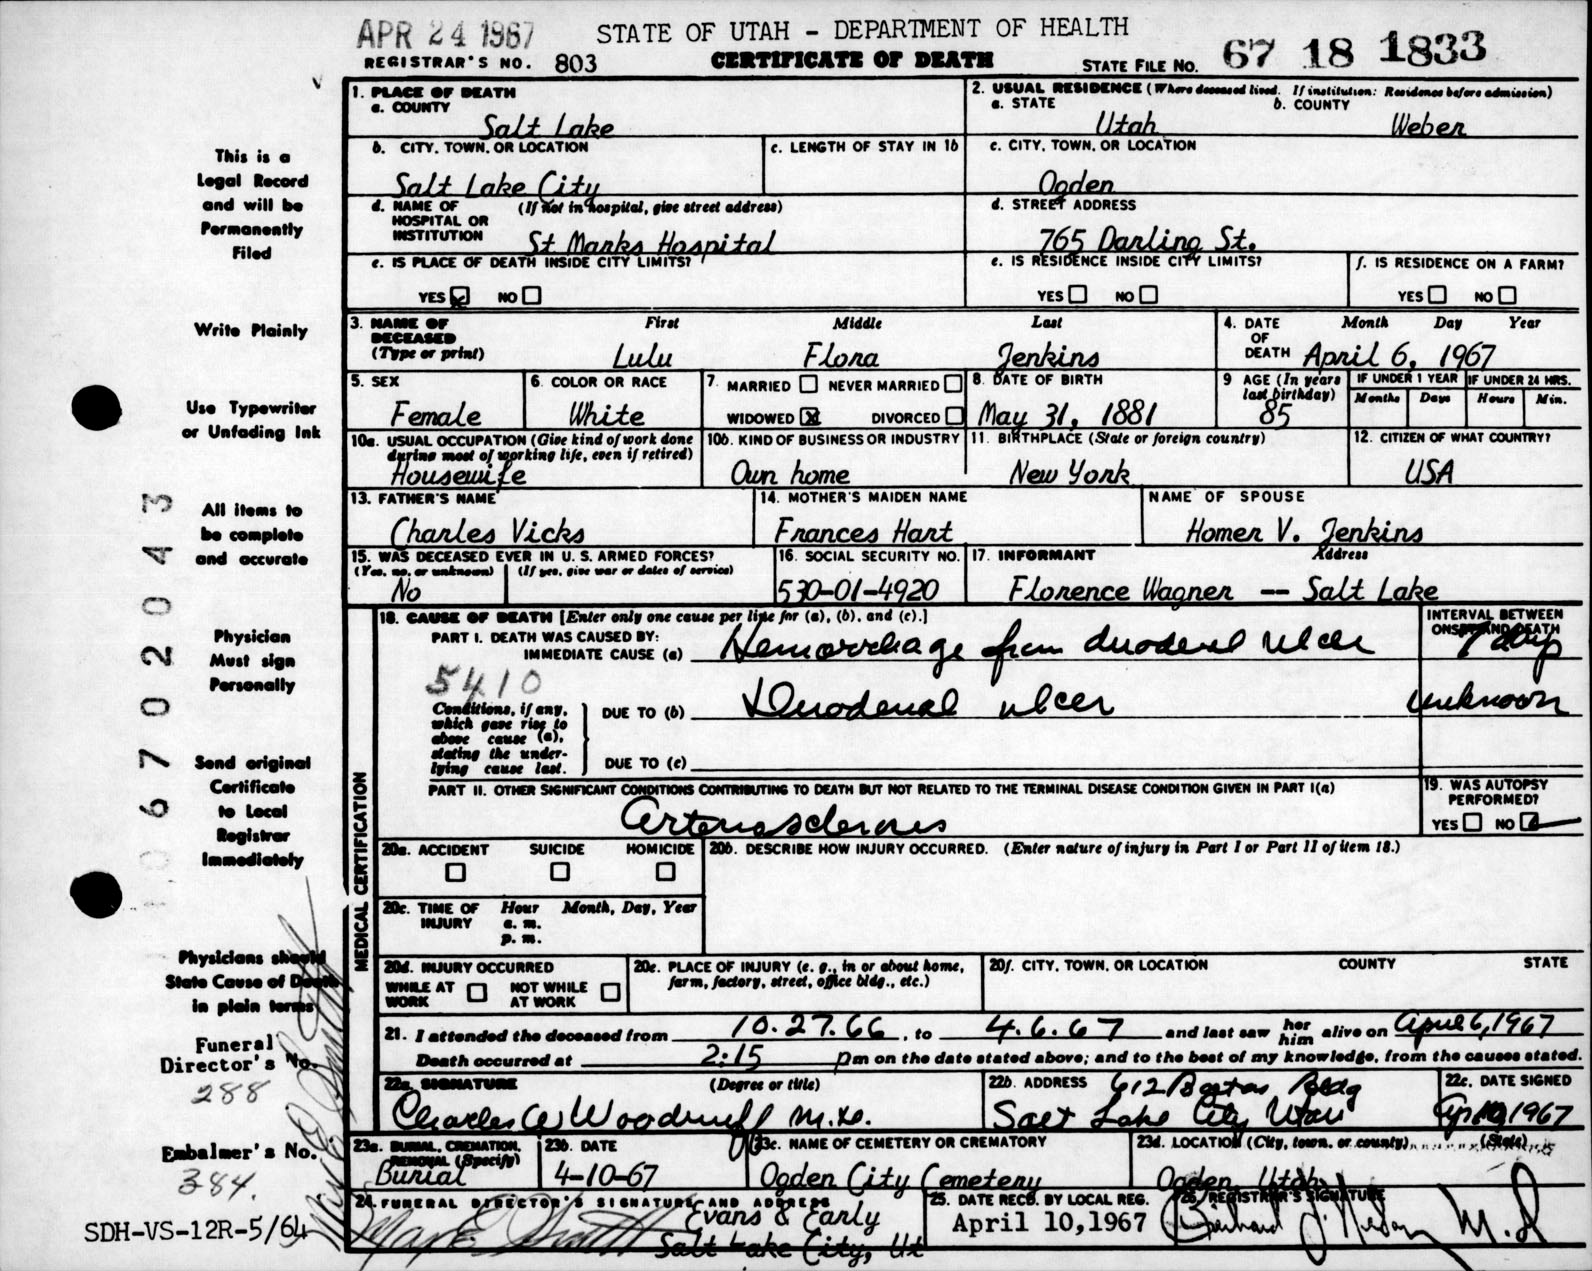 APR 24 1967
STATE OF UTAH - DEPARTMENT OF HEALTH
REGISTRAR'S NO. 803
CERTIFICATE OF DEATH
STATE FILE NO. 67 18 1833
1. PLACE OF DEATH
a. COUNTY
Salt Lake
2. USUAL RESIDENCE (Where deceased lived. If institution: Residence before admission)
a. STATE b. COUNTY
Utah Weber
b. CITY, TOWN, OR LOCATION
Salt Lake City
c. LENGTH OF STAY IN 1b
c. CITY, TOWN, OR LOCATION
Ogden
d. NAME OF HOSPITAL OR INSTITUTION (If not in hospital, give street address)
St Marks Hospital
d. STREET ADDRESS
765 Darling St.
e. IS PLACE OF DEATH INSIDE CITY LIMITS?
YES NO
e. IS RESIDENCE INSIDE CITY LIMITS?
YES NO
f. IS RESIDENCE ON A FARM?
YES NO
3. NAME OF DECEASED (Type or print)
First Middle Last
Lulu Flora Jenkins
4. DATE OF DEATH Month Day Year
April 6, 1967
5. SEX
Female
6. COLOR OR RACE
White
7. MARRIED NEVER MARRIED
WIDOWED X DIVORCED
8. DATE OF BIRTH
May 31, 1881
9 AGE (In years last birthday)
85
IF UNDER 1 YEAR IF UNDER 24 HRS.
Months Days Hours Min.
10a. USUAL OCCUPATION (Give kind of work done during most of working life, even if retired)
Housewife
10b. KIND OF BUSINESS OR INDUSTRY
Own home
11. BIRTHPLACE (State or foreign country)
New York
12. CITIZEN OF WHAT COUNTRY?
USA
13. FATHER'S NAME
Charles Vicks
14. MOTHER'S MAIDEN NAME
Frances Hart
NAME OF SPOUSE
Homer V. Jenkins
15. WAS DECEASED EVER IN U. S. ARMED FORCES?
(Yes, no, or unknown) (If yes, give war or dates of service)
No
16. SOCIAL SECURITY NO.
530-01-4920
17. INFORMANT Address
Florence Wagner -- Salt Lake
MEDICAL CERTIFICATION
18. CAUSE OF DEATH [Enter only one cause per line for (a), (b), and (c).]
PART I. DEATH WAS CAUSED BY:
IMMEDIATE CAUSE (a) Hemorrhage from duodenal ulcer
INTERVAL BETWEEN ONSET AND DEATH
5410
Conditions, if any, which gave rise to above cause (a), stating the underlying cause last.
DUE TO (b) Duodenal ulcer unknown
DUE TO (c)
PART II. OTHER SIGNIFICANT CONDITIONS CONTRIBUTING TO DEATH BUT NOT RELATED TO THE TERMINAL DISEASE CONDITION GIVEN IN PART I(a)
Arteriosclerosis
19. WAS AUTOPSY PERFORMED?
YES NO
20a. ACCIDENT SUICIDE HOMICIDE
20b. DESCRIBE HOW INJURY OCCURRED. (Enter nature of injury in Part I or Part II of item 18.)
20c. TIME OF INJURY Hour Month, Day, Year
a. m.
p. m.
20d. INJURY OCCURRED
WHILE AT WORK NOT WHILE AT WORK
20e. PLACE OF INJURY (e. g., in or about home, farm, factory, street, office bldg., etc.)
20f. CITY, TOWN, OR LOCATION COUNTY STATE
21. I attended the deceased from 10.27.66, to 4.6.67 and last saw her him alive on April 6, 1967
Death occurred at 2:15 pm on the date stated above; and to the best of my knowledge, from the causes stated.
22a. SIGNATURE (Degree or title)
Charles A Woodruff M.D.
22b. ADDRESS 612 Boston Bldg
Salt Lake City Utah
22c. DATE SIGNED
1967
23a. BURIAL, CREMATION, REMOVAL (Specify)
Burial
23b. DATE
4-10-67
23c. NAME OF CEMETERY OR CREMATORY
Ogden City Cemetery
23d. LOCATION (City, town, or county) (State)
Ogden, Utah
24. FUNERAL DIRECTOR'S SIGNATURE AND ADDRESS
Evans & Early
Salt Lake City, Ut
25. DATE RECD. BY LOCAL REG.
April 10, 1967
26. REGISTRAR'S SIGNATURE
M.D.
This is a
Legal Record
and will be
Permanently
Filed
Write Plainly
Use Typewriter
or Unfading Ink
All items to
be complete
and accurate
Physician
Must sign
Personally
Send original
Certificate
to Local
Registrar
Immediately
Physicians should
State Cause of Death
in plain terms
Funeral
Director's No.
288
Embalmer's No.
384.
SDH-VS-12R-5/64
06702043